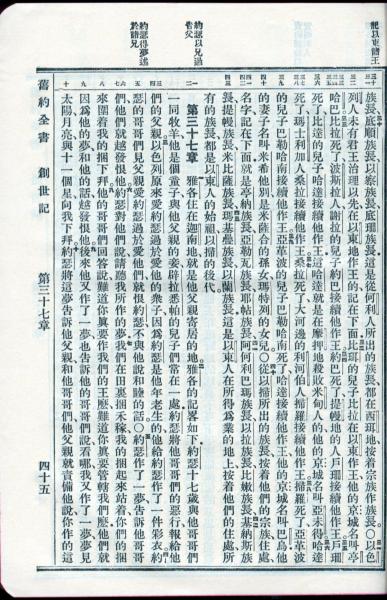 記以東諸王
約瑟以兄過告父
約瑟得夢述於諸兄
族長底順族長以察族長底珊族長這是從何利人所出的族長都在西珥地按着宗族作族長〇以色
列人未有君王治理以先在以東地作王的記在下面比珥的兒子比拉在以東作王他的京城名叫亭
哈巴比拉死了波斯拉人謝拉的兒子約巴接續他作王約巴死了提幔地的人戶珊接續他作王戶珊
死了比達的兒子哈達接續他作王這哈達就是在摩押地殺敗米甸人的他的京城名叫亞未得哈達
死了瑪士利加人桑拉接續他作王桑拉死了大河邊的利河伯人掃羅接續他作王掃羅死了亞革波
的兒子巴勒哈南接續他作王亞革波的兒子巴勒哈南死了哈達接續他作王他的京城名叫巴烏他
的妻子名叫米希他別是米薩合的孫女瑪特列的女兒〇從以掃所出的族長按着他們的宗族住處
名字記在下面就是亭納族長亞勒瓦族長耶帖族長阿何利巴瑪族長以拉族長比嫩族長基納斯族
長提幔族長米比薩族長瑪基疊族長以蘭族長這是以東人在所得為業的地上按着他們的住處所
有的族長都是以東人的始祖以掃的後代
第三十七章 雅各住在迦南地就是他父親寄居的地雅各的記畧如下約瑟十七歲與他哥哥們
一同牧羊他是個童子與他父親的妾辟拉悉帕的兒子們常在一處約瑟將他哥哥們的惡行報給他
們的父親以色列原來愛約瑟過於愛他的衆子因為約瑟是他年老生的他給約瑟作了一件彩衣約
瑟的哥哥們見父親愛約瑟過於愛他們就恨約瑟不與他說和睦的話〇約瑟作了一夢告訴他哥哥
們他們就越發恨他約瑟對他們說請聽我所作的夢我們在田裏捆禾稼我的捆起來站着你們的捆
來圍着我的捆下拜他的哥哥們回答說難道你真要作我們的王麽難道你真要管轄我們麽他們就
因為他的夢和他的話越發恨他後來他又作了一夢也告訴他的哥哥們說看哪我又作了一夢夢見
太陽月亮與十一個星向我下拜約瑟將這夢告訴他父親和他哥哥們他父親就責備他說你作的這
舊約全書 創世記 第三十七章 四十五